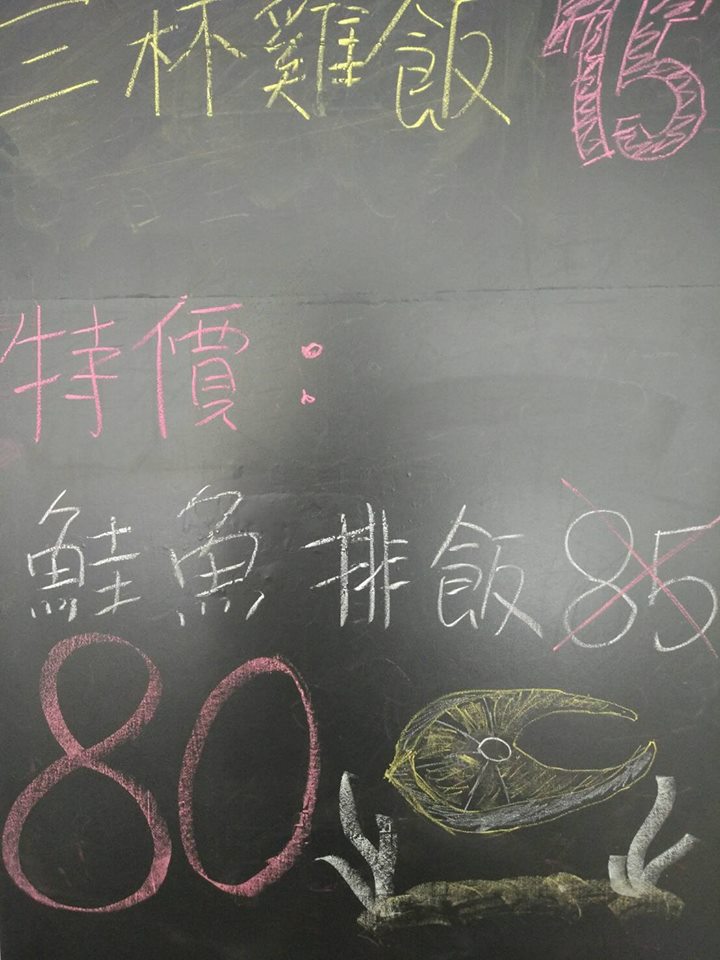 三杯雞飯 75
特價：
鮭魚排飯 85
80